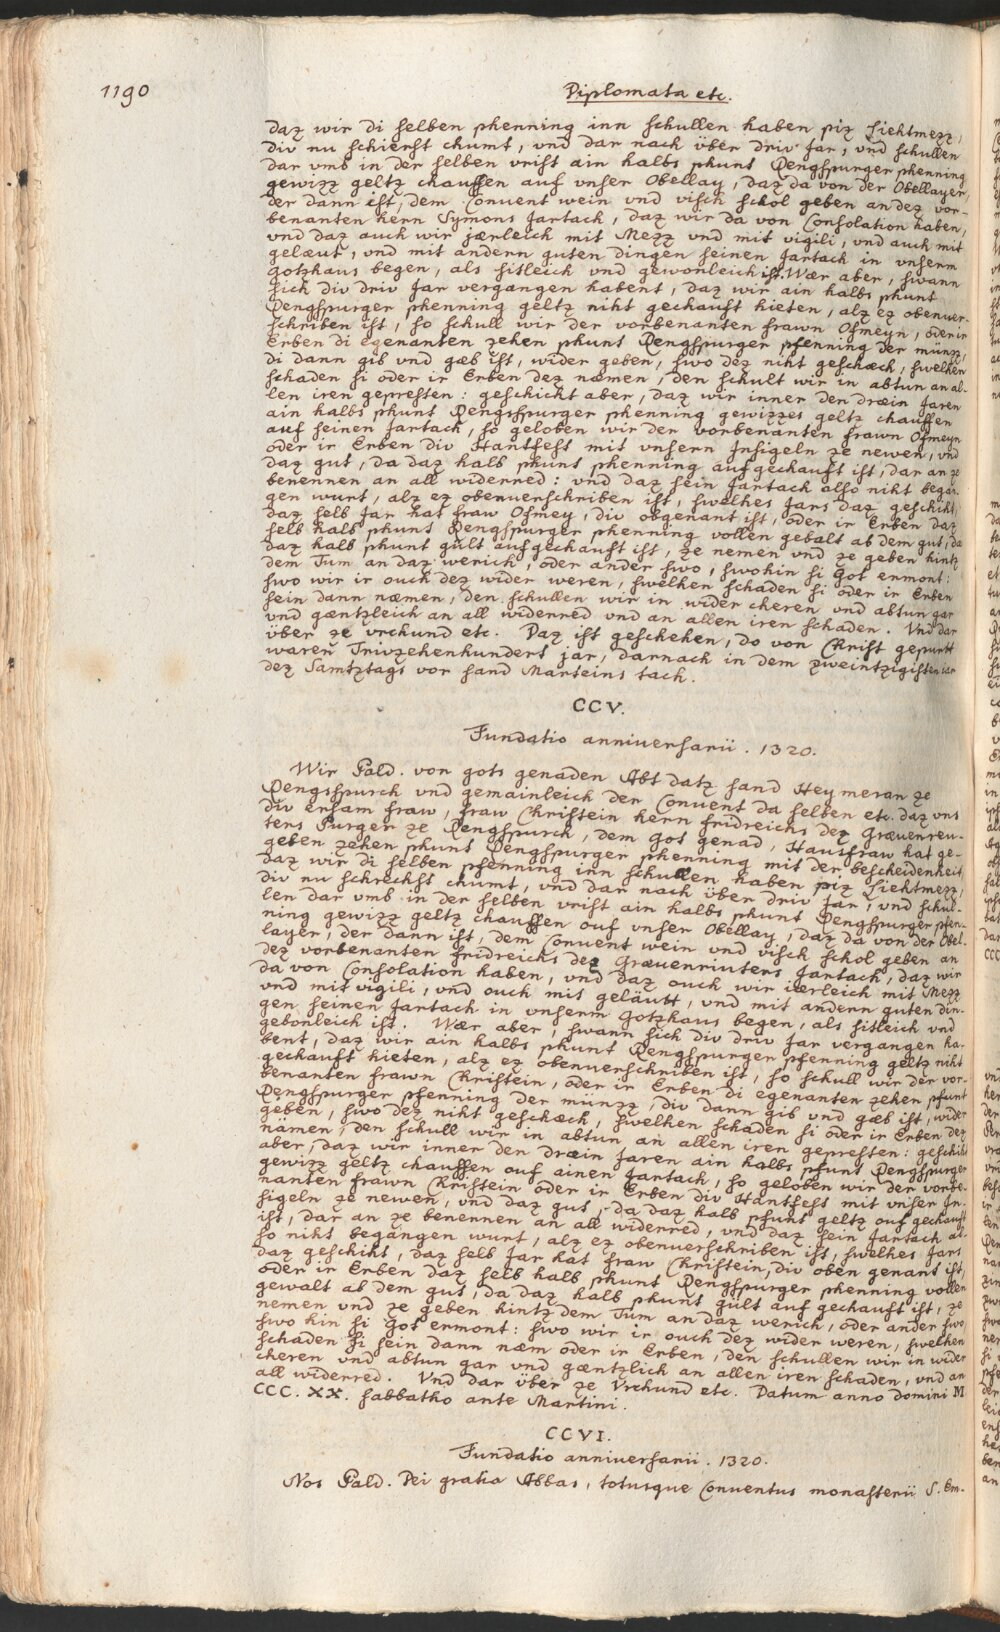 1190
Diplomata etc.
daz wir di selben phenning inn schullen haben piz Liehtmezz,
div nu schierst chumt, vnd dar nach über driv Jar, vnd schullen
dar vmb in der selben vrist ain halbs phunt Rengspurger phenning
gewizz geltz chauffen auf vnser Obellay, daz da von der Obellayer,
der dann ist, dem Conuent wein vnd visch schol geben an dez vor-
benanten hern Symons Jartach, daz wir da von Consolation haben,
vnd daz auch wir jærleich mit Mezz vnd mit vigili, vnd auch mit
gelæut, vnd mit andern guten dingen seinen Jartach in vnserm
Gotzhaus begen, als sitleich vnd gewonleich ist. Wær aber, swann
sich div driv Jar vergangen habent, daz wir ain halbs phunt
Rengspurger phenning geltz niht gechauft hieten, alz ez obenver-
schriben ist, so schull wir der vorbenanten frawn Ofmeyn, oder ir
Erben di egenanten zehen phunt Rengspurger pfenning der münzz,
di dann gib vnd gæb ist, wider geben, swo dez niht geschæch, swelhen
schaden si oder ir Erben dez næmen, den schult wir in abtun an al-
len iren gepresten: geschicht aber, daz wir inner den dræin Jaren
ain halbs phunt Rengspurger phenning gewizzes geltz chauffen
auf seinen Jartach, so geloben wir der vorbenanten frawn Ofmeyn
oder ir Erben div Hantfest mit vnsern Insigeln ze newen, vnd
daz gut, da daz halb phunt phenning aufgechauft ist, dar an ze
benennen an all widerred: vnd daz sein Jartach also niht began-
gen wurt, alz ez obenuerschriben ist, swelhes Jars daz geschiht,
daz selb Jar hat fraw Ofmey, div obgenant ist, oder ir Erben daz
selb halb phunt Rengspurger phenning vollen gebalt ab dem gut, da
daz halb phunt gült aufgechauft ist, ze nemen vnd ze geben hintz
dem Tum an daz werich, oder ander swo, swohin si Got enmont:
swo wir ir ouch dez wider weren, swelhen schaden si oder ir Erben
sein dann næmen, den schullen wir in wider cheren vnd abtun gar
vnd gæntzleich an all widerred vnd an allen iren schaden. Vnd dar
über ze vrchund etc. Daz ist geschehen, do von Christ gepurtt
waren Trivzehenhundert jar, darnach in dem zweintzigisten iar
dez Samtztags vor sand Marteins tach.
CCV.
Fundatio anniuersarii. 1320.
Wir Bald. von gots genaden Abt datz sand Heymeran ze
Rengspurch vnd gemainleich der Conuent da selben etc. daz vns
div ersam fraw, fraw Christein hern fridreichs dez Græuenreu-
ters Purger ze Rengspurch, dem Got genad, Hausfraw hat ge-
geben zehen phunt Rengspurger phenning mit der bescheidenheit,
daz wir di selben pfenning inn schullen haben piz Liehtmezz,
div nu schiechst chumt, vnd dar nach über driv Jar, vnd schul-
len dar vmb in der selben vrist ain halbs phunt Rengspurger pfen-
ning gewizz geltz chauffen ouf vnser Obellay, daz da von der Obel-
layer, der dann ist, dem Conuent wein vnd visch schol geben an
dez vorbenanten fridreichs dez Græuenriuters Jartach, daz wir
da von Consolation haben, vnd daz ouch wir iærleich mit Mezz
vnd mit vigili, vnd ouch mit geläutt, vnd mit andern guten din-
gen seinen Jartach in vnserm Gotzhaus begen, als sitleich vnd
gebonleich ist. Wær aber, swann sich div driv Jar vergangen ha-
bent, daz wir ain halbs phunt Rengspurger pfenning geltz niht
gechauft hieten, alz ez obenuerschriben ist, so schull wir der vor-
benanten frawn Christein, oder ir Erben di egenanten zehen pfunt
Rengspurger pfenning der münzz, div dann gib vnd gæb ist, wider
geben, swo dez niht geschæch, swelhen schaden si oder ir Erben dez
nämen, den schull wir in abtun an allen iren gepresten: geschiht
aber, daz wir inner den dræin Jaren ain halbs pfunt Rengspurger
gewizz geltz chauffen ouf ainen Jartach, so geloben wir der vorbe-
nanten frawn Christein oder ir Erben div Hantfest mit vnser In-
sigeln ze newen, vnd daz gut, da daz halb pfunt geltz ouf gechauft
ist, dar an ze benennen an all widerred, vnd daz sein Jartach al-
so niht begangen wurt, alz ez obenuerschriben ist, swelhes Jars
daz geschiht, daz selb Jar hat fraw Christein, div oben genant ist,
oder ir Erben daz selb halb phunt Rengspurger phenning vollen
gewalt ab dem gut, da daz halb phunt gült auf gechauft ist, ze
nemen vnd ze geben hintz dem Tum an daz werich, oder ander swo,
swo hin si Got enmont: swo wir ir ouch dez wider weren, swelhen
schaden si sein dann næm oder ir Erben, den schullen wir in wider
cheren vnd abtun gar vnd gæntzlich an allen iren schaden, vnd an
all widerred. Vnd dar über ze Vrchund etc. Datum anno domini M
CCC. XX. sabbatho ante Martini.
CCVI.
Fundatio anniuersarii. 1320.
Nos Bald. Dei gratia Abbas, totusque Conuentus monasterii S. Em-